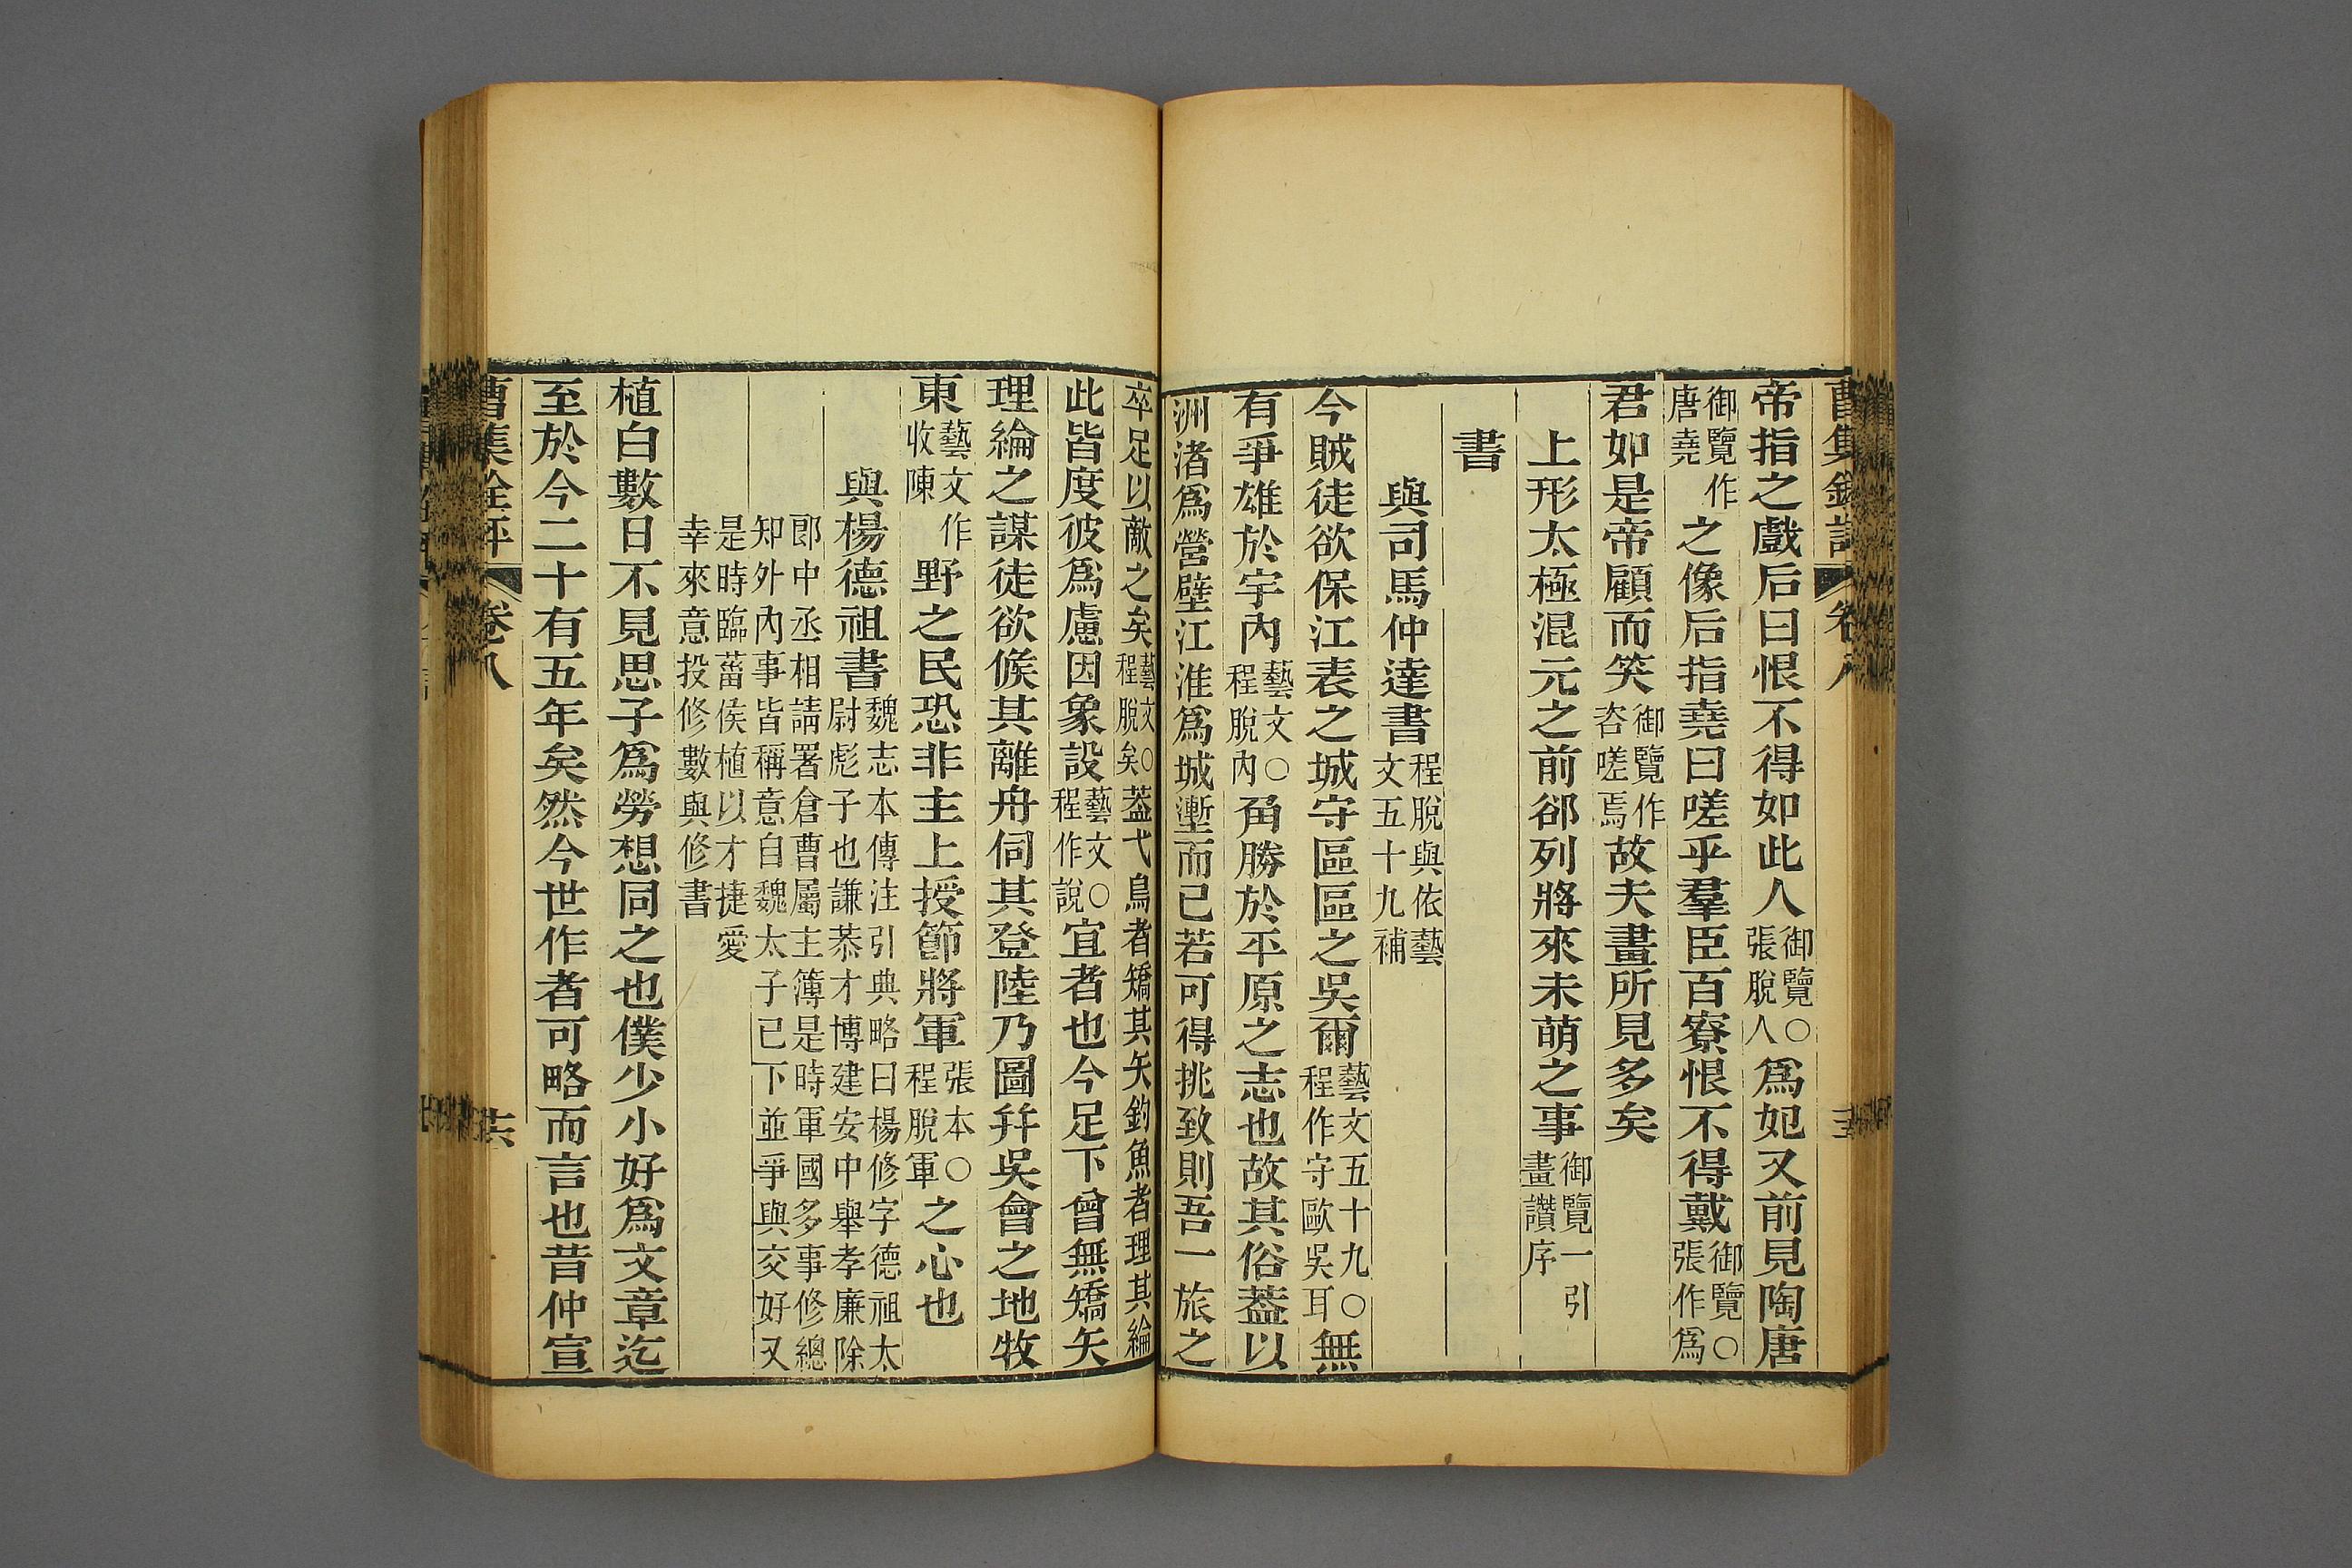 帝指之戲后曰恨不得如此人御覽〇張脫人為妃又前見陶唐
御覽作唐堯之像后指堯曰嗟乎羣臣百寮恨不得戴御覽〇張作為
君如是帝顧而笑御覽作咨嗟焉故夫畫所見多矣
上形太極混元之前郤列將來未萌之事御覽一引畫讚序
書
與司馬仲達書程脫與依藝文五十九補
今賊徒欲保江表之城守區區之吳爾藝文五十九〇程作守歐吳耳無
有爭雄於宇內藝文〇程脫內角勝於平原之志也故其俗葢以
洲渚為營壁江淮為城塹而已若可得挑致則吾一旅之
卒足以敵之矣藝文〇程脫矣葢弋鳥者矯其矢釣魚者理其綸
此皆度彼為慮因象設藝文〇程作說宜者也今足下曾無矯矢
理綸之謀徒欲候其離舟伺其登陸乃圖幷吳會之地牧
東藝文作收陳野之民恐非主上授節將軍張本〇程脫軍之心也
與楊德祖書魏志本傳注引典略曰楊修字德祖太尉彪子也謙恭才博建安中舉孝廉除
郎中丞相請署倉曹屬主簿是時軍國多事修總知外內事皆稱意自魏太子已下並爭與交好又
是時臨菑侯植以才捷愛幸來意投修數與修書
植白數日不見思子為勞想同之也僕少小好為文章迄
至於今二十有五年矣然今世作者可略而言也昔仲宣
曹集詮評
卷八